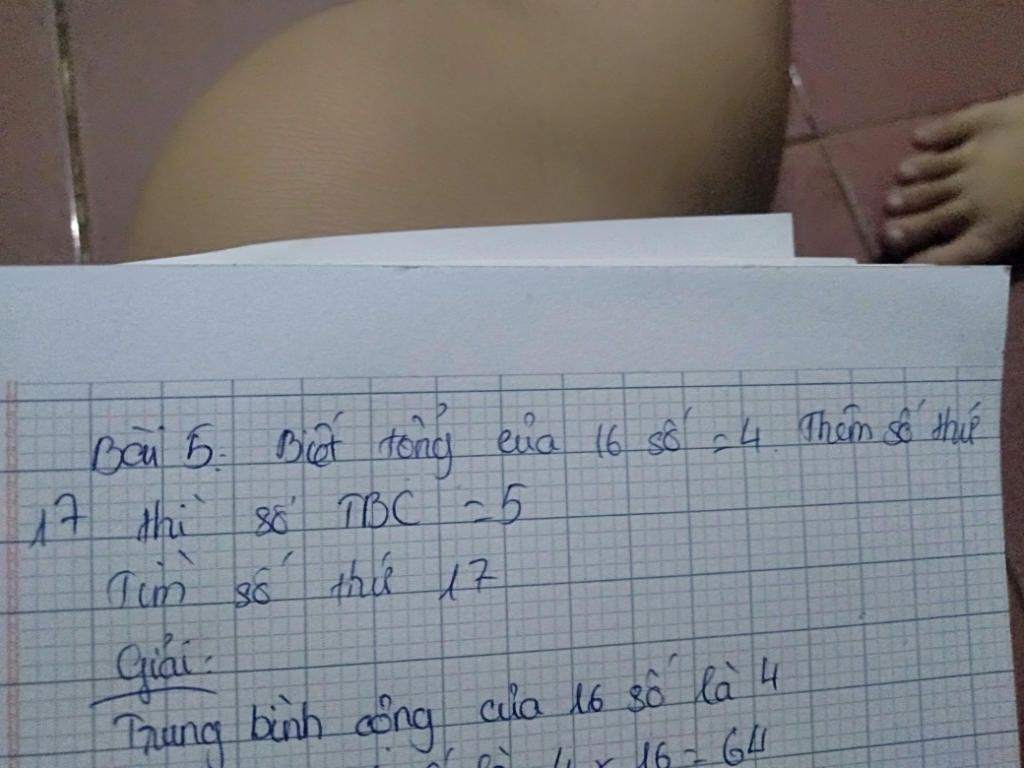 Bài 5: Biết tổng của 16 số = 4. Thêm số thứ
17 thì số TBC = 5
Tìm số thứ 17
Giải:
Trung bình cộng của 16 số là 4
4 x 16 = 64